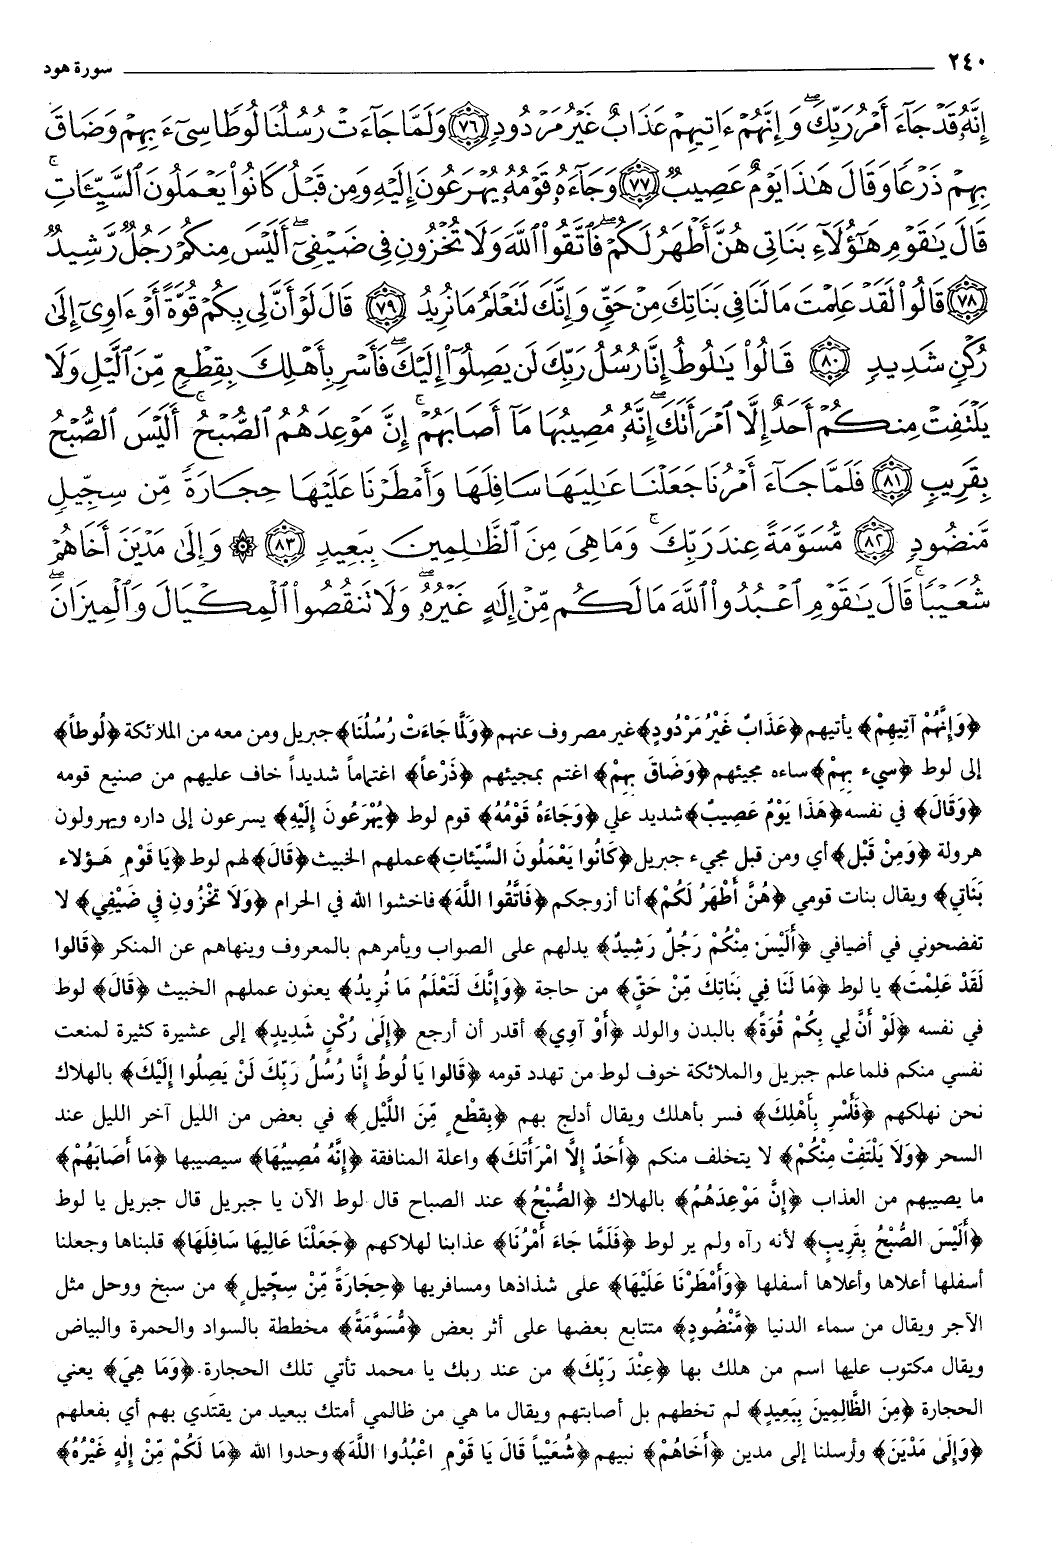 ٢٤٠ سورة هود
إِنَّهُۥ قَدْ جَآءَ أَمْرُ رَبِّكَ ۖ وَإِنَّهُمْ ءَاتِيهِمْ عَذَابٌ غَيْرُ مَرْدُودٍ ﴿٧٦﴾ وَلَمَّا جَآءَتْ رُسُلُنَا لُوطًا سِىٓءَ بِهِمْ وَضَاقَ
بِهِمْ ذَرْعًا وَقَالَ هَـٰذَا يَوْمٌ عَصِيبٌ ﴿٧٧﴾ وَجَآءَهُۥ قَوْمُهُۥ يُهْرَعُونَ إِلَيْهِ وَمِن قَبْلُ كَانُوا۟ يَعْمَلُونَ ٱلسَّيِّـَٔاتِ ۚ
قَالَ يَـٰقَوْمِ هَـٰٓؤُلَآءِ بَنَاتِى هُنَّ أَطْهَرُ لَكُمْ ۖ فَٱتَّقُوا۟ ٱللَّهَ وَلَا تُخْزُونِ فِى ضَيْفِىٓ ۖ أَلَيْسَ مِنكُمْ رَجُلٌ رَّشِيدٌ
﴿٧٨﴾ قَالُوا۟ لَقَدْ عَلِمْتَ مَا لَنَا فِى بَنَاتِكَ مِنْ حَقٍّ وَإِنَّكَ لَتَعْلَمُ مَا نُرِيدُ ﴿٧٩﴾ قَالَ لَوْ أَنَّ لِى بِكُمْ قُوَّةً أَوْ ءَاوِىٓ إِلَىٰ
رُكْنٍ شَدِيدٍ ﴿٨٠﴾ قَالُوا۟ يَـٰلُوطُ إِنَّا رُسُلُ رَبِّكَ لَن يَصِلُوٓا۟ إِلَيْكَ ۖ فَأَسْرِ بِأَهْلِكَ بِقِطْعٍ مِّنَ ٱلَّيْلِ وَلَا
يَلْتَفِتْ مِنكُمْ أَحَدٌ إِلَّا ٱمْرَأَتَكَ ۖ إِنَّهُۥ مُصِيبُهَا مَآ أَصَابَهُمْ ۚ إِنَّ مَوْعِدَهُمُ ٱلصُّبْحُ ۚ أَلَيْسَ ٱلصُّبْحُ
بِقَرِيبٍ ﴿٨١﴾ فَلَمَّا جَآءَ أَمْرُنَا جَعَلْنَا عَـٰلِيَهَا سَافِلَهَا وَأَمْطَرْنَا عَلَيْهَا حِجَارَةً مِّن سِجِّيلٍ
مَّنضُودٍ ﴿٨٢﴾ مُّسَوَّمَةً عِندَ رَبِّكَ ۖ وَمَا هِىَ مِنَ ٱلظَّـٰلِمِينَ بِبَعِيدٍ ﴿٨٣﴾ ۞ وَإِلَىٰ مَدْيَنَ أَخَاهُمْ
شُعَيْبًا ۚ قَالَ يَـٰقَوْمِ ٱعْبُدُوا۟ ٱللَّهَ مَا لَكُم مِّنْ إِلَـٰهٍ غَيْرُهُۥ ۖ وَلَا تَنقُصُوا۟ ٱلْمِكْيَالَ وَٱلْمِيزَانَ ۚ
﴿وَإِنَّهُمْ آتِيهِمْ﴾ يأتيهم ﴿عَذَابٌ غَيْرُ مَرْدُودٍ﴾ غير مصروف عنهم ﴿وَلَمَّا جَاءَتْ رُسُلُنَا﴾ جبريل ومن معه من الملائكة ﴿لُوطاً﴾
إلى لوط ﴿سِيءَ بِهِمْ﴾ ساءه مجيئهم ﴿وَضَاقَ بِهِمْ﴾ اغتم بمجيئهم ﴿ذَرْعاً﴾ اغتماماً شديداً خاف عليهم من صنيع قومه
﴿وَقَالَ﴾ في نفسه ﴿هَذَا يَوْمٌ عَصِيبٌ﴾ شديد علي ﴿وَجَاءَهُ قَوْمُهُ﴾ قوم لوط ﴿يُهْرَعُونَ إِلَيْهِ﴾ يسرعون إلى داره ويهرولون
هرولة ﴿وَمِنْ قَبْلُ﴾ أي ومن قبل مجيء جبريل ﴿كَانُوا يَعْمَلُونَ السَّيِّئَاتِ﴾ عملهم الخبيث ﴿قَالَ﴾ لهم لوط ﴿يَا قَوْمِ هَؤُلاء
بَنَاتِي﴾ ويقال بنات قومي ﴿هُنَّ أَطْهَرُ لَكُمْ﴾ أنا أزوجكم ﴿فَاتَّقُوا اللَّهَ﴾ فاخشوا الله في الحرام ﴿وَلَا تُخْزُونِ فِي ضَيْفِي﴾ لا
تفضحوني في أضيافي ﴿أَلَيْسَ مِنْكُمْ رَجُلٌ رَشِيدٌ﴾ يدلهم على الصواب ويأمرهم بالمعروف وينهاهم عن المنكر ﴿قَالُوا
لَقَدْ عَلِمْتَ﴾ يا لوط ﴿مَا لَنَا فِي بَنَاتِكَ مِنْ حَقٍّ﴾ من حاجة ﴿وَإِنَّكَ لَتَعْلَمُ مَا نُرِيدُ﴾ يعنون عملهم الخبيث ﴿قَالَ﴾ لوط
في نفسه ﴿لَوْ أَنَّ لِي بِكُمْ قُوَّةً﴾ بالبدن والولد ﴿أَوْ آوِي﴾ أقدر أن أرجع ﴿إِلَىٰ رُكْنٍ شَدِيدٍ﴾ إلى عشيرة كثيرة لمنعت
نفسي منكم فلما علم جبريل والملائكة خوف لوط من تهدد قومه ﴿قَالُوا يَا لُوطُ إِنَّا رُسُلُ رَبِّكَ لَنْ يَصِلُوا إِلَيْكَ﴾ بالهلاك
نحن نهلكهم ﴿فَأَسْرِ بِأَهْلِكَ﴾ فسر بأهلك ويقال أدلج بهم ﴿بِقِطْعٍ مِّنَ اللَّيْلِ﴾ في بعض من الليل آخر الليل عند
السحر ﴿وَلَا يَلْتَفِتْ مِنْكُمْ﴾ لا يتخلف منكم ﴿أَحَدٌ إِلَّا امْرَأَتَكَ﴾ واعلة المنافقة ﴿إِنَّهُ مُصِيبُهَا﴾ سيصيبها ﴿مَا أَصَابَهُمْ﴾
ما يصيبهم من العذاب ﴿إِنَّ مَوْعِدَهُمُ﴾ بالهلاك ﴿الصُّبْحُ﴾ عند الصباح قال لوط الآن يا جبريل قال جبريل يا لوط
﴿أَلَيْسَ الصُّبْحُ بِقَرِيبٍ﴾ لأنه رآه ولم ير لوط ﴿فَلَمَّا جَاءَ أَمْرُنَا﴾ عذابنا لهلاكهم ﴿جَعَلْنَا عَالِيهَا سَافِلَهَا﴾ قلبناها وجعلنا
أسفلها أعلاها وأعلاها أسفلها ﴿وَأَمْطَرْنَا عَلَيْهَا﴾ على شذاذها ومسافريها ﴿حِجَارَةً مِّنْ سِجِّيلٍ﴾ من سبخ ووحل مثل
الآجر ويقال من سماء الدنيا ﴿مَّنْضُودٍ﴾ متتابع بعضها على أثر بعض ﴿مُّسَوَّمَةً﴾ مخططة بالسواد والحمرة والبياض
ويقال مكتوب عليها اسم من هلك بها ﴿عِنْدَ رَبِّكَ﴾ من عند ربك يا محمد تأتي تلك الحجارة. ﴿وَمَا هِيَ﴾ يعني
الحجارة ﴿مِنَ الظَّالِمِينَ بِبَعِيدٍ﴾ لم تخطهم بل أصابتهم ويقال ما هي من ظالمي أمتك ببعيد من يقتدي بهم أي بفعلهم
﴿وَإِلَىٰ مَدْيَنَ﴾ وأرسلنا إلى مدين ﴿أَخَاهُمْ﴾ نبيهم ﴿شُعَيْباً قَالَ يَا قَوْمِ اعْبُدُوا اللَّهَ﴾ وحدوا الله ﴿مَا لَكُمْ مِّنْ إِلَٰهٍ غَيْرُهُ﴾